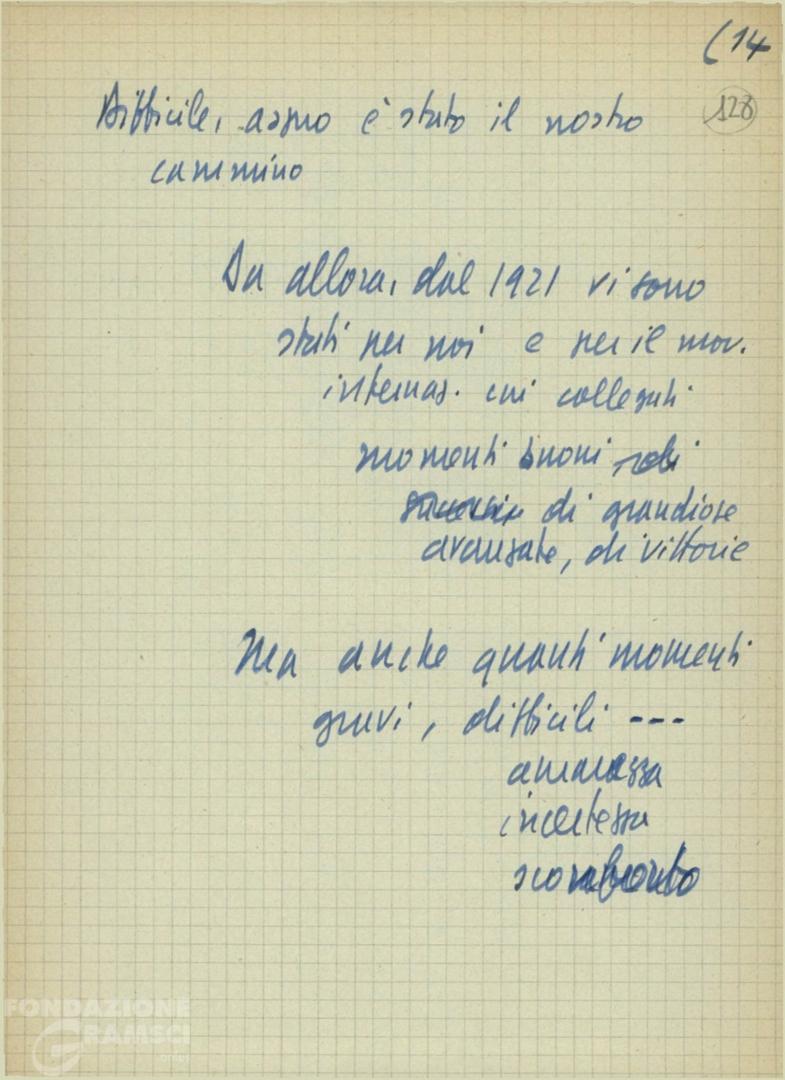 (14
128
Difficile, aspro è stato il nostro
cammino
Da allora, dal 1921 vi sono
stati per noi e per il mov.
internaz. cui collegati
momenti buoni
di grandiose
avanzate, di vittorie
Ma anche quanti momenti
gravi, difficili ---
amarezza
incertezza
sconforto
FONDAZIONE
GRAMSCI
onlus